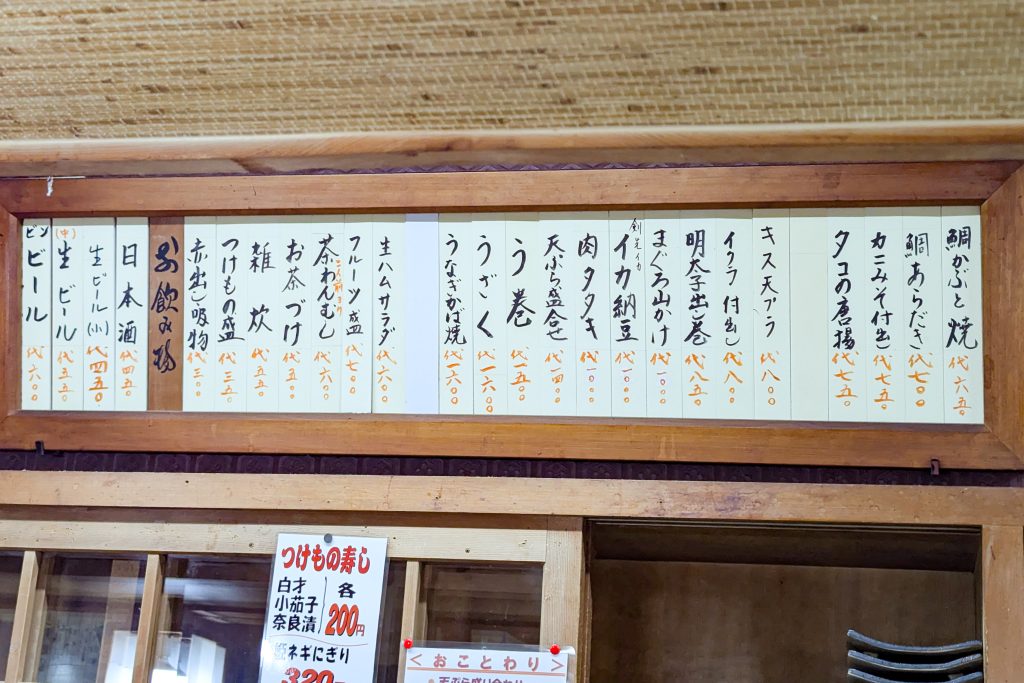 鯛かぶと焼 代六五〇
鯛あらだき 代七〇〇
カニみそ付出し 代七五〇
タコの唐揚 代七五〇
キス天プラ 代八〇〇
イクラ付出し 代八〇〇
明太子出し巻 代八五〇
まぐろ山かけ 代一〇〇〇
剣先イカ
イカ納豆 代一〇〇〇
肉タタキ 代一〇〇〇
天ぷら盛合せ 代一四〇〇
う巻 代一五〇〇
うざく 代一六〇〇
うなぎかば焼 代一六〇〇
生ハムサラダ 代六〇〇
フルーツ盛 代七〇〇
茶わんむし 代六〇〇
お茶づけ 代五〇〇
雑炊 代五五〇
つけもの盛 代三五〇
赤出し吸物 代三〇〇
お飲み物
日本酒 代四五〇
生ビール(小) 代四五〇
(中)
生ビール 代五五〇
ビン
ビール 代六〇〇
つけもの寿し
白才
小茄子
奈良漬
各
200円
ネギにぎり
320
＜おことわり＞